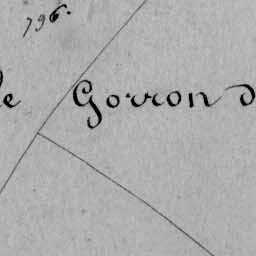 796.
de Gorron d